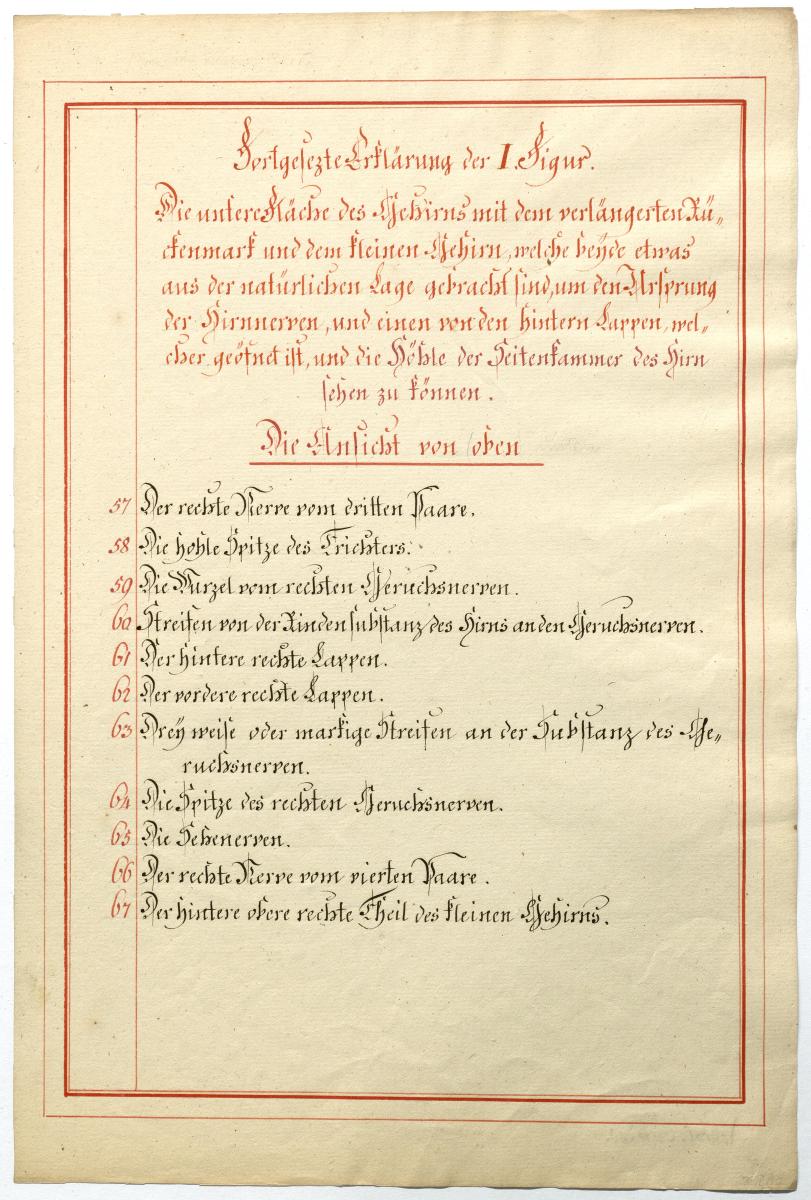 Fortgesezte Erklärung der I. Figur.
Die untere Fläche des Gehirns mit dem verlängerten Rü„
ckenmark und dem kleinen Gehirn, welche beyde etwas
aus der natürlichen Lage gebracht sind, um den Ursprung
der Hirnnerven, und einen von den hintern Lappen, wel„
cher geöfnet ist, und die Höhle der Seitenkammer des Hirn
sehen zu können.
Die Ansicht von oben
57 Der rechte Nerve vom dritten Paare.
58 Die hohle Spitze des Trichters.
59 Die Wurzel vom rechten Geruchsnerven.
60 Streifen von der Rindensubstanz des Hirns an den Geruchsnerven.
61 Der hintere rechte Lappen.
62 Der vordere rechte Lappen.
63 Drey weise oder markige Streifen an der Substanz des Ge„
ruchsnerven.
64 Die Spitze des rechten Geruchsnerven.
65 Die Sehenerven.
66 Der rechte Nerve vom vierten Paare.
67 Der hintere obere rechte Theil des kleinen Gehirns.